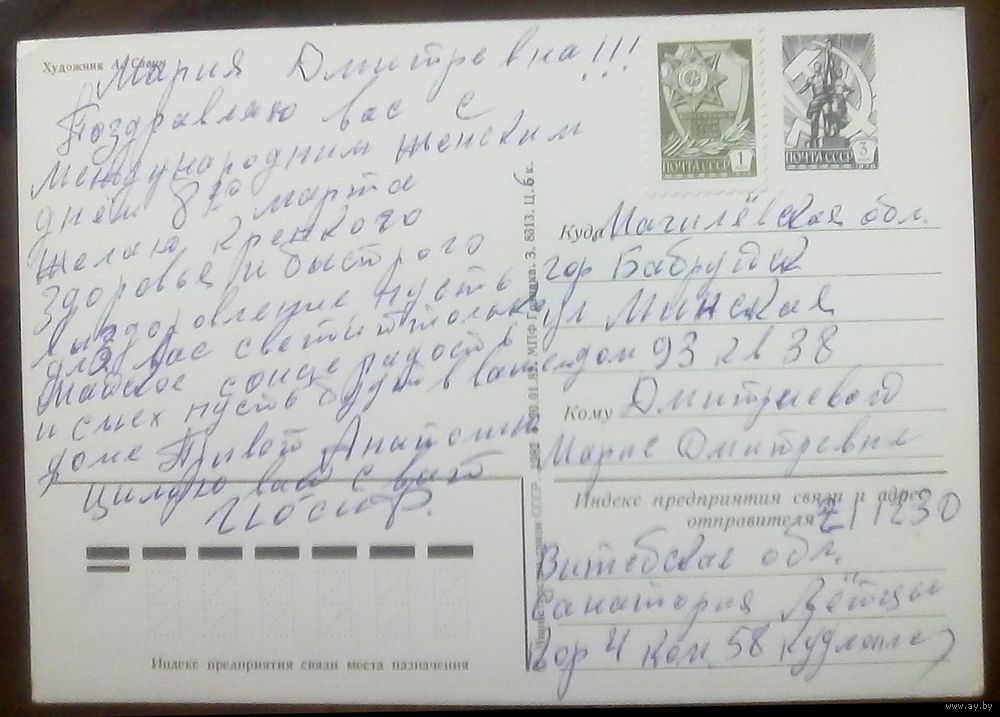 Художник А.
Мария Дмитревна!!!
Поздравляю вас с
международним женским
днём 8го марта
желаю крепкого
здоровья и быстрого
выздоровление пусть
для вас светит только
майское сонце радость
и смех пусть будут в вашем
доме Привет Анатолию
цилую вас
ПОЧТА СССР 1
ПОЧТА СССР 3
1976
Куда Магилёвская обл.
гор Бабруйск
ул Минская
дом 93 кв 38
Кому Дмитриевой
Марие Дмитревне
Индекс предприятия связи и адрес
отправителя 211230
Витебская обл.
санатория Лётцы
Кор 4 ком 58
Индекс предприятия связи места назначения
З. 8313. Ц. 6 к.
www.ay.by